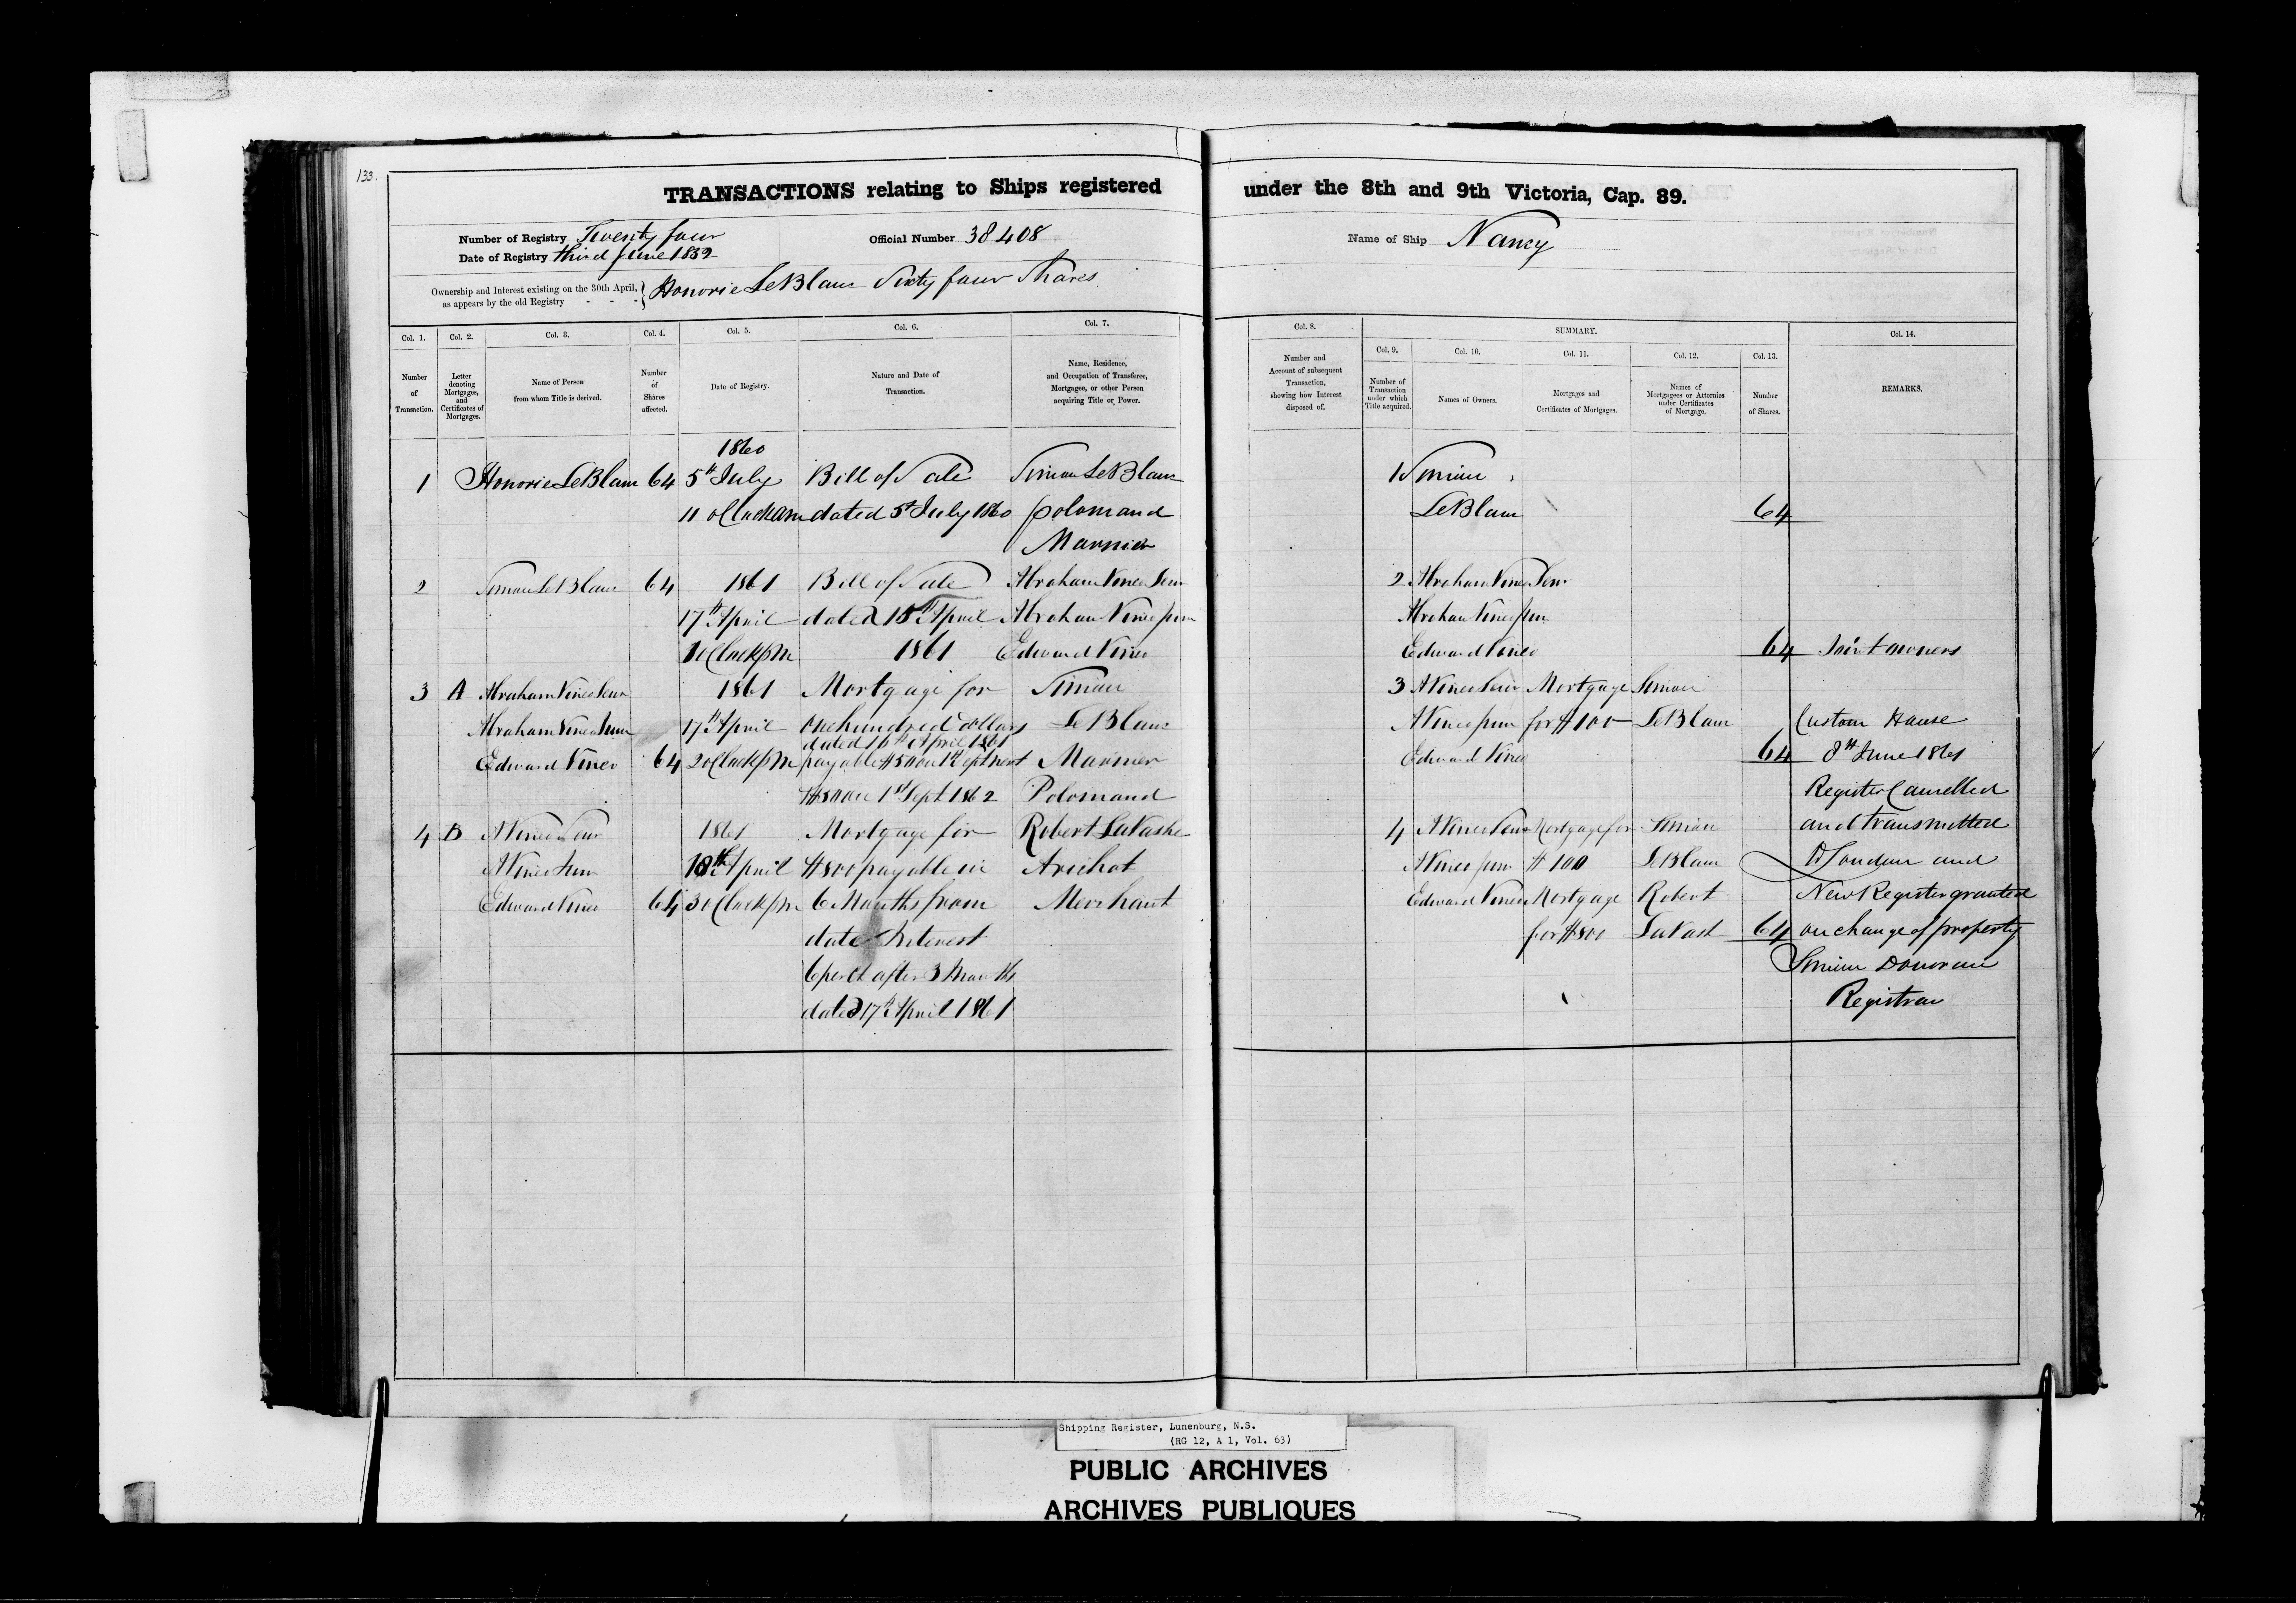 133.
TRANSACTIONS relating to Ships registered under the 8th and 9th Victoria, Cap. 89.
Number of Registry Twenty four
Date of Registry third June 1852
Official Number 38408
Name of Ship Nancy
Ownership and Interest existing on the 30th April,
as appears by the old Registry - - - } Honorie LeBlanc Sixty four Shares
Col. 1. Col. 2. Col. 3. Col. 4. Col. 5. Col. 6. Col. 7.
Number of Transaction.
Letter denoting Mortgages, and Certificates of Mortgages.
Name of Person from whom Title is derived.
Number of Shares affected.
Date of Registry.
Nature and Date of Transaction.
Name, Residence, and Occupation of Transferee, Mortgagee, or other Person acquiring Title or Power.
1860
1 Honorie LeBlanc 64 5th July Bill of Sale Simon LeBlanc
11 oClock am dated 5th July 1860 polomand
Marnier
2 Simon LeBlanc 64 1861 Bill of Sale Abraham Vineo Senr
17th April dated 15th April Abraham Vineo junr
1 oClock pm 1861 Edward Vineo
3 A Abraham Vineo Senr 1861 Mortgage for Simon
Abraham Vineo Junr 17th April One hundred dollars LeBlanc
dated 16th April 1861
Edward Vineo 64 2 oClock pm payable $50 on 1st Sept next Marnier
$50 on 1st Sept 1862 Polomand
4 B A Vineo Senr 1861 Mortgage for Robert LaVashe
A Vineo Junr 18th April $800 payable in Arichat
Edward Vineo 64 3 oClock pm 6 Months from Merchant
date Interest
6 per ct after 3 Months
dated 17th April 1861
Col. 8. SUMMARY. Col. 14.
Col. 9. Col. 10. Col. 11. Col. 12. Col. 13.
Number and Account of subsequent Transaction, showing how Interest disposed of.
Number of Transaction under which Title acquired.
Names of Owners.
Mortgages and Certificates of Mortgages.
Names of Mortgagees or Attornies under Certificates of Mortgage.
Number of Shares.
REMARKS.
1 Simon
LeBlanc 64
2 Abraham Vineo Senr
Abraham Vineo Junr
Edward Vineo 64 Joint owners
3 A Vineo Senr Mortgage Simon
A Vineo junr for $100 LeBlanc Custom House
Edward Vineo 64 8th June 1861
Register Cancelled
4 A Vineo Senr Mortgage for Simon and transmitted
A Vineo junr $100 LeBlanc London and
Edward Vineo Mortgage Robert New Register granted
for $800 LaVash 64 on change of property
Donovan
Registrar
Shipping Register, Lunenburg, N.S.
(RG 12, A 1, Vol. 63)
PUBLIC ARCHIVES
ARCHIVES PUBLIQUES